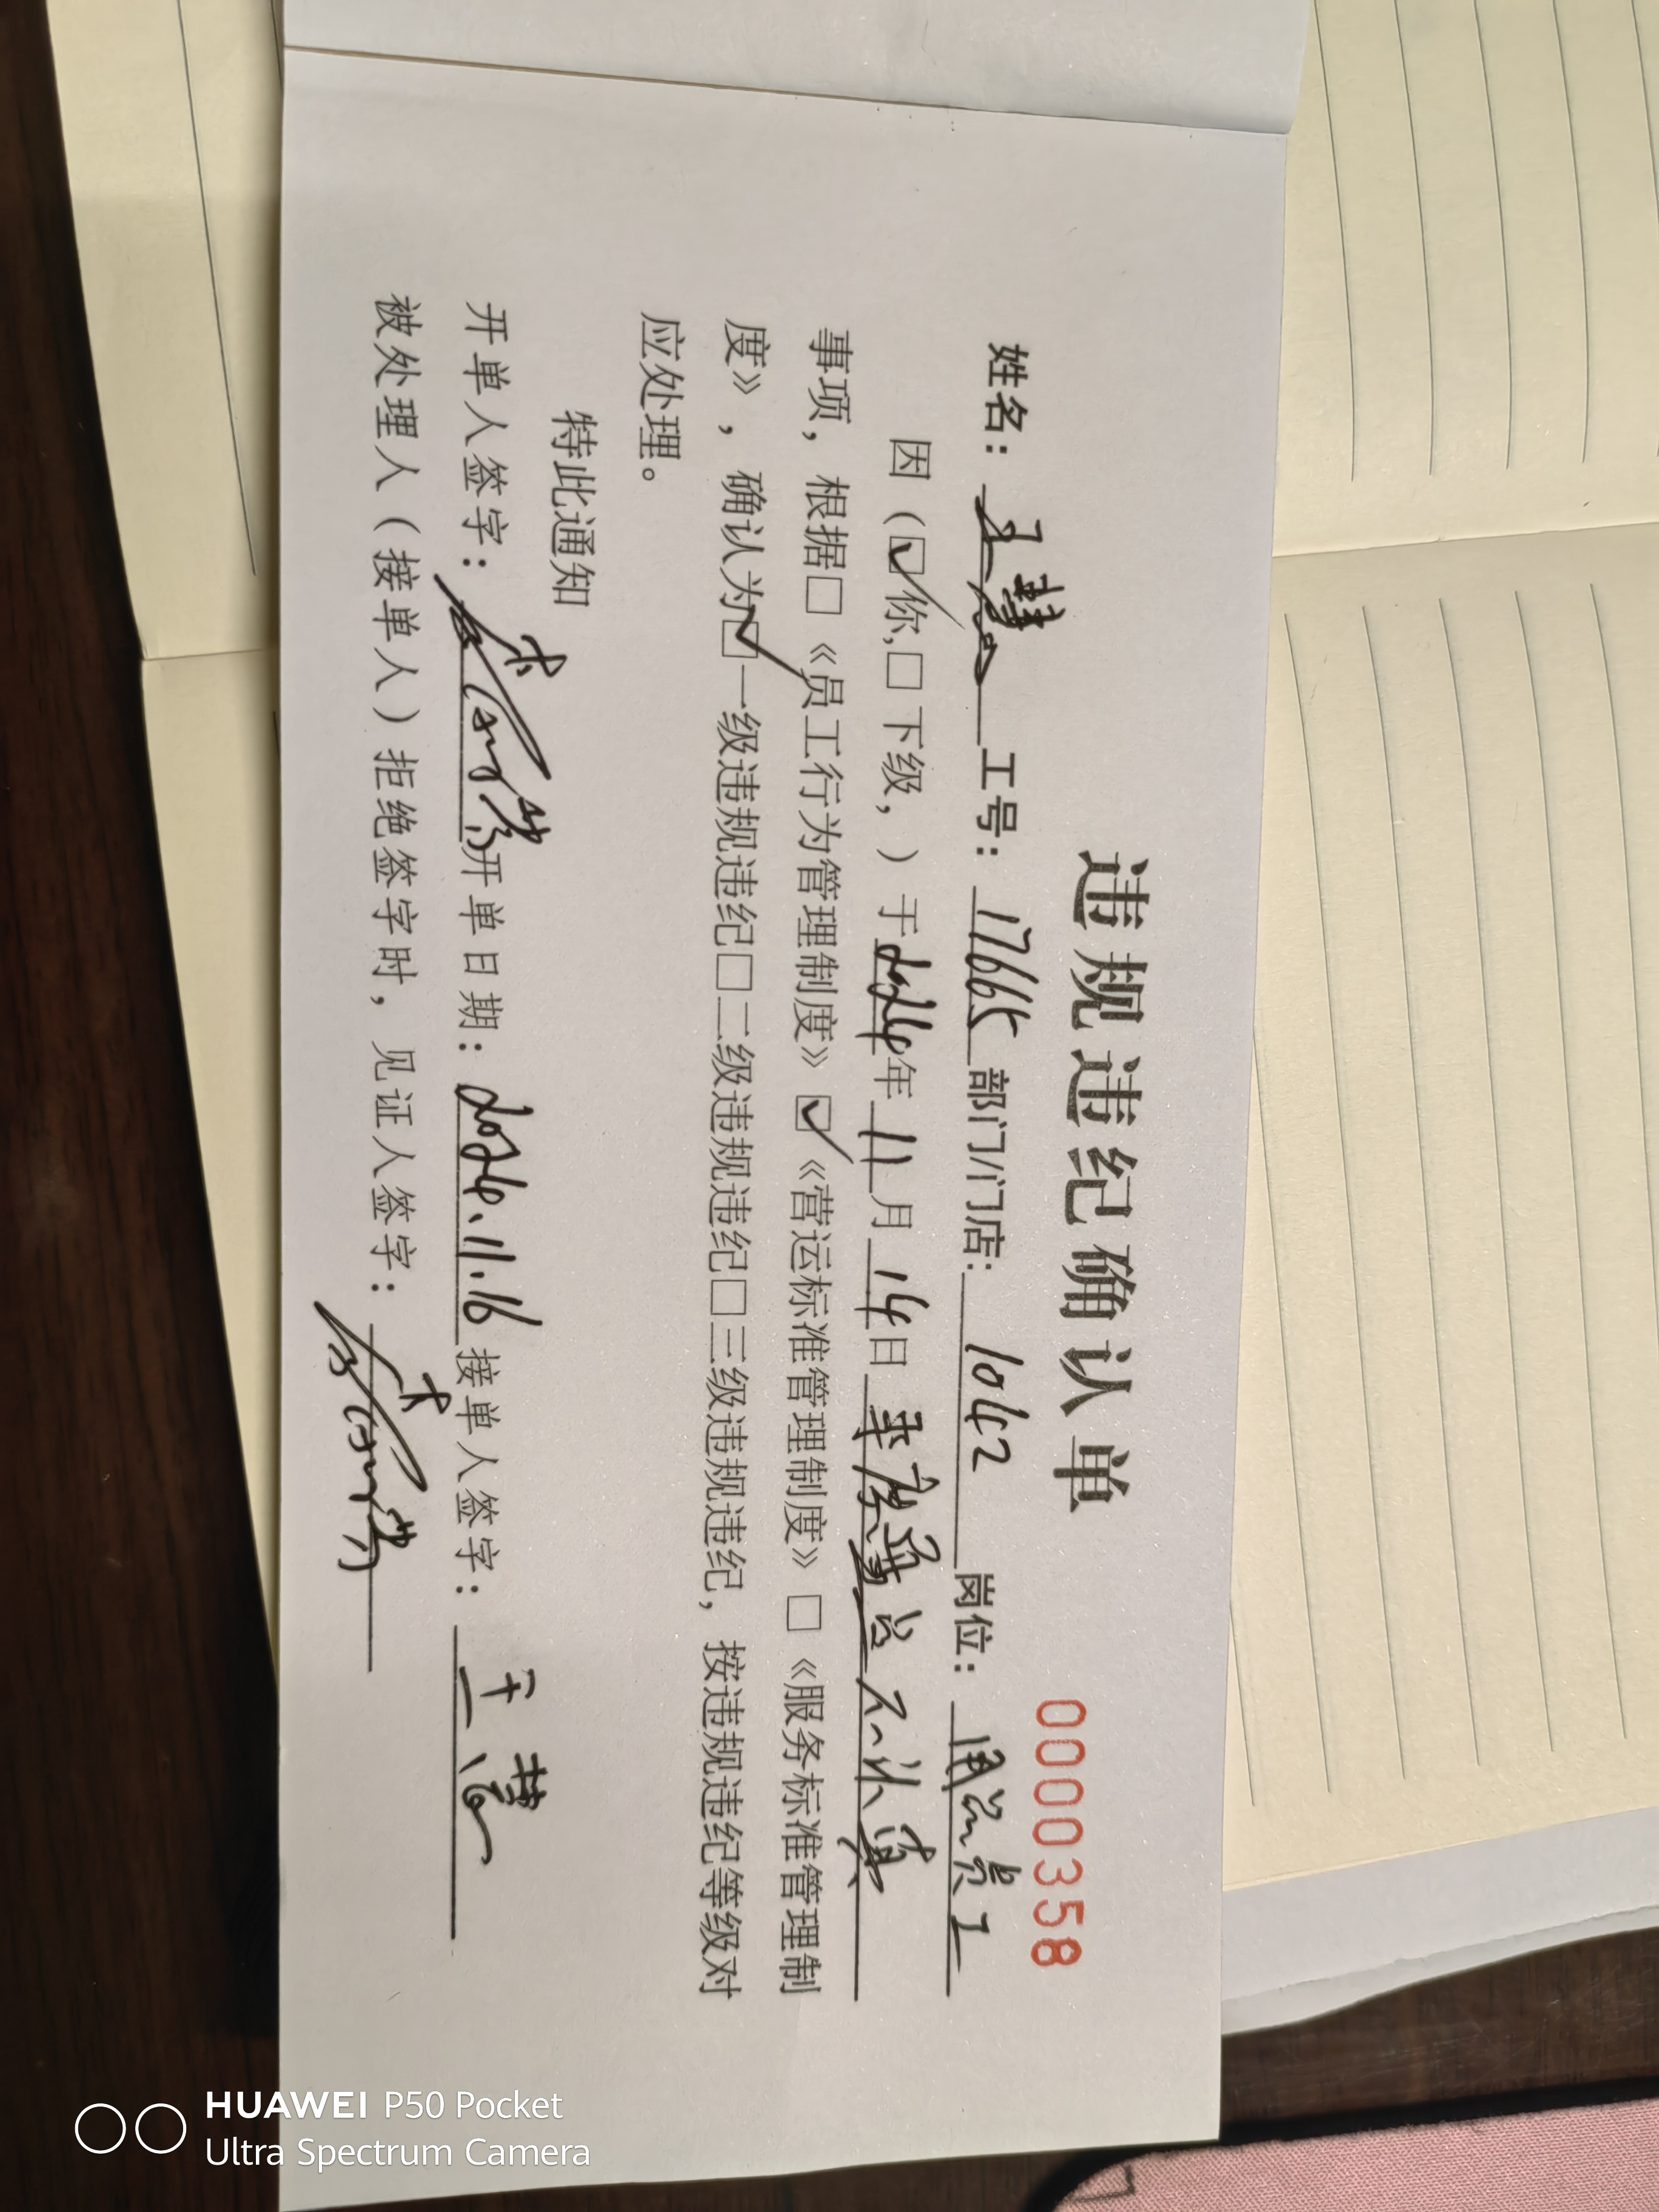 违规违纪确认单
0000358
姓名：王慧 工号：17665 部门/门店：1042 岗位：员工
因（☑你，□下级，）于2024年11月14日 不
事项，根据□《员工行为管理制度》☑《营运标准管理制度》□《服务标准管理制
度》，确认为☑一级违规违纪□二级违规违纪□三级违规违纪，按违规违纪等级对
应处理。
特此通知
开单人签字： 开单日期：2024.11.16 接单人签字：王慧
被处理人（接单人）拒绝签字时，见证人签字：
HUAWEI P50 Pocket
Ultra Spectrum Camera